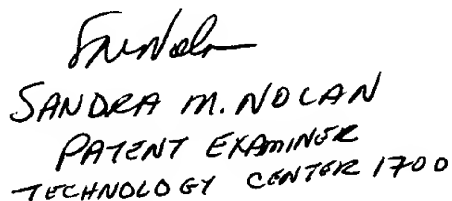 SANDRA M. NOLAN
PATENT EXAMINER
TECHNOLOGY CENTER 1700